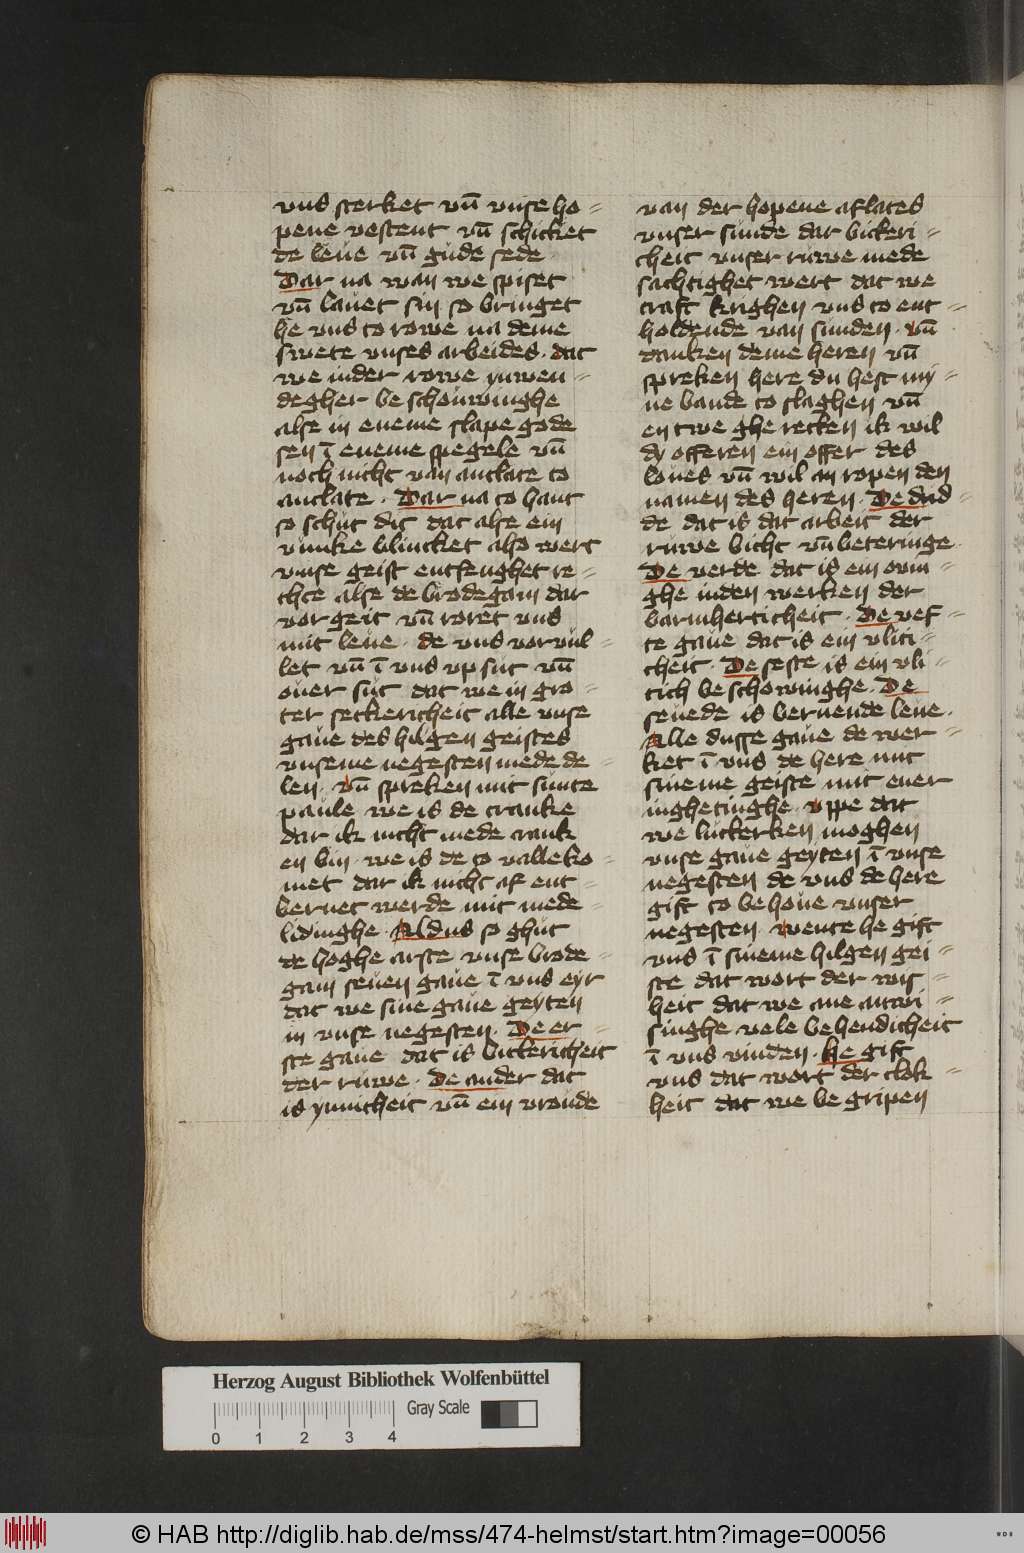 vns sterket vn̄ vnse ho=
pene vestent vn̄ schicket
de leue vn̄ gude sede
Dar na wan we spiset
vn̄ lauet sin so bringet
he vns to rowe na deme
swete vnses arbeides · dat
we inder rowe ynwen=
degher be schouwinghe
alse in eneme slape gode
sen ī eneme spegele vn̄
noch nicht van antlate to
antlate · Dar na to hant
so schut dit dat alse ein
vunke blincket also wert
vnse geist entfenghet re=
chte alse de brodegam dar
vor geit vn̄ roret vns
mit leue · de vns vorvul=
let vn̄ ī vns vp sut vn̄
ouer sut dat we in gro=
ter seckericheit alle vnse
gaue des hilgen geistes
vnseme negesten mede de=
len · vn̄ spreken mit sunte
paule we is de cranke
dar ik nicht mede crank
en bin · we is de to valleko=
met dar ik nicht af ent=
bernet werde mit mede=
lidinghe · Aldus so ghut
de hoghe arste vnse brode=
gam seuen gaue ī vns eyr
dat we sine gaue geyten
in vnse negesten · De er=
ste gaue dat is bickericheit
der ruwe · De ander dat
is ynnicheit vn̄ ein vroude
van der hopene aflates
vnser sunde dar bickeri=
cheit vnser ruwe mede
sachtighet wert dat we
craft krighen vns to ent=
holdende van sunden · vn̄
danken deme heren vn̄
spreken here du hest my=
ne bande to slaghen vn̄
en twe ghe recken ik wil
dy offeren ein offer des
loues vn̄ wil an ropen den
namen des heren · De drud=
de dat is dat arbeit der
ruwe bicht vn̄ beteringe
De verde dat is ein ouin=
ghe inden werken der
barmherticheit · De vef=
te gaue dat is ein vliti=
cheit · De seste is ein vli=
tich be schowinghe · De
seuede is bernende leue ·
Alle dusse gaue de wer=
ket ī vns de here mit
sineme geiste mit ener
inghetinghe · vppe dat
we luckerken moghen
vnse gaue geyten ī vnse
negesten de vns de here
gift to be houe vnser
negesten · wente he gift
vns ī sineme hilgen gei=
ste dat wort der wis=
heit dat we ane anwi=
singhe vele behendicheit
ī vns vinden · He gift
vns dat wort der clok=
heit dat we be gripen
Herzog August Bibliothek Wolfenbüttel
Gray Scale
0 1 2 3 4
© HAB http://diglib.hab.de/mss/474-helmst/start.htm?image=00056